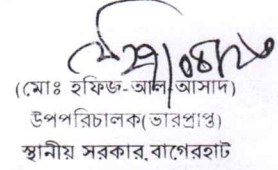 (মোঃ হফিজ-আল-আসাদ)
উপপরিচালক(ভারপ্রাপ্ত)
স্থানীয় সরকার, বাগেরহাট